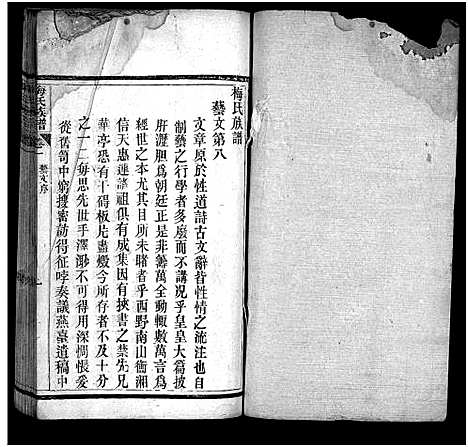 梅氏族譜
藝文第八
文章原於性道詩古文辭皆性情之流注也自
制藝之行學者多廢而不講況乎皇皇大篇披
肝瀝胆為朝廷正是非籌萬全動輒數萬言為
經世之本尤其目所未睹者乎西野南山衡湘
信天惠連諸祖俱有成集因有挾書之禁先兄
華亭恐有干碍板片盡燬今所存者不及十分
之一二每思先世手澤渺不可得用深惆悵爰
從舊笥中窮搜密訪得征哱奏議燕臺遺稿中
梅氏族譜
卷二
藝文序